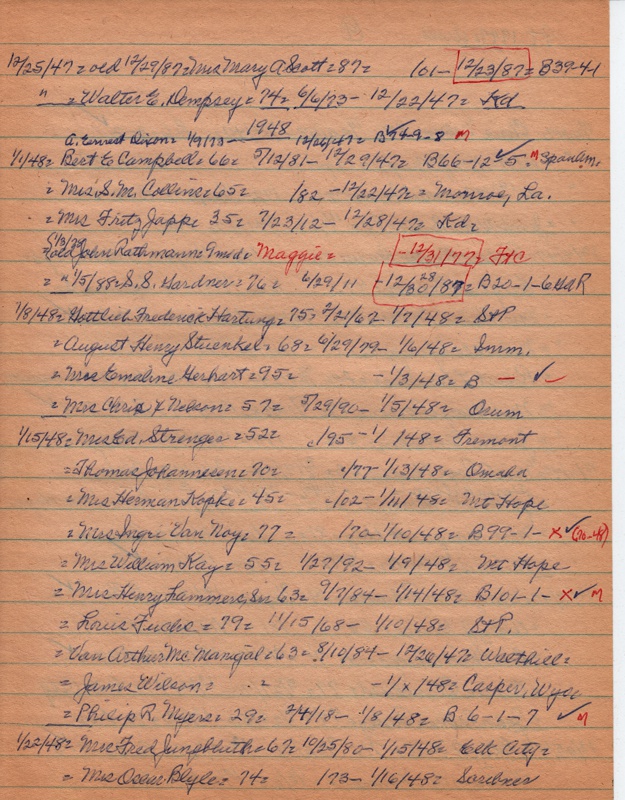 12/25/47 = old 12/29/87 = Mrs Mary A Scott = 87 = /01 - 12/23/87 = B39-41
" = Walter E. Dempsey = 74 = 6/6/73 - 12/22/47 = Kd
1948
A. Earnest Dixon = 1/9/73 - 12/26/47 = B 99-8 M
1/1/48 = Bert E Campbell = 66 = 5/12/81 - 12/29/47 = B66-12-5 = M
= Mrs. S. M. Collins = 65 = /82 - 12/22/47 = Monroe, La.
= Mrs Fritz Jappe 35 = 7/23/12 - 12/28/47 = Kd =
old John Rathmann = 9 mid = Maggie = - 12/31/77 = F/C
= " 1/5/88 = S. S. Gardner = 76 = 6/29/11 - 12/28/30/87 = B20-1-6
1/8/48 = Gottlieb Frederick Hartung = 75 = 2/21/67 - 1/7/48 = StP
= August Henry Stuenkel = 68 = 6/29/79 - 1/6/48 = Imm.
= Mrs Emaline Herhart = 95 = - 1/3/48 = B - ✓ -
= Mrs Chris X Nelson = 57 = 5/29/90 - 1/5/48 = Orum
1/15/48 = Mrs Ed. Strenger = 52 = /95 - 1/ /48 = Fremont
= Thomas Johannesen = 70 = /77 - 1/13/48 = Omaha
= Mrs Herman Kopke = 45 = /02 - 1/11/48 = Mt Hope
= Mrs Ingri Van Noy = 77 = /70 - 1/10/48 = B99-1- x ✓ (70-48)
= Mrs William Kay = 55 = 1/27/92 - 1/9/48 = Mt Hope
= Mrs Henry Lammers, Sr. 63 = 9/7/84 - 1/14/48 = B/01-1- x ✓ M
= Louis Fuchs = 79 = 11/15/68 - 1/10/48 = StP.
= Van Arthur McManigal = 63 = 8/10/84 - 12/26/47 = Walthill =
= James Wilson = - 1/x/48 = Casper, Wyo
= Philip R. Myers = 29 = 2/4/18 - 1/8/48 = B 6-1-7 ✓ M
1/22/48 = Mrs Fred Jungbluth = 67 = 10/25/80 - 1/15/48 = Elk City =
= Mrs Oscar Blyle = 74 = /73 - 1/16/48 = Scribner